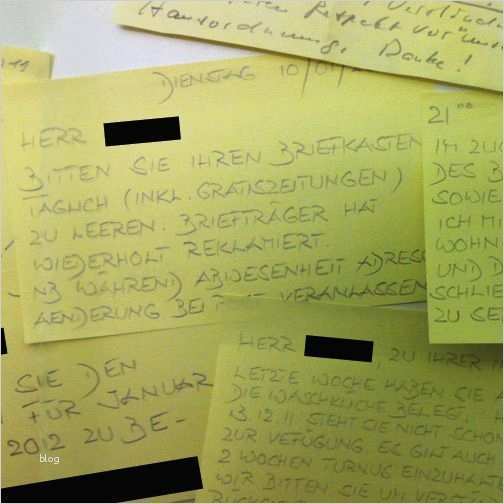 Hausordnung. Danke!
11
DIENSTAG 10/01/
HERR
BITTEN SIE IHREN BRIEFKASTEN
TÄGLICH (INKL. GRATISZEITUNGEN)
ZU LEEREN. BRIEFTRÄGER HAT
WIEDERHOLT REKLAMIERT.
NB WÄHREND ABWESENHEIT ADRESS
AENDERUNG BEI VERANLASSEN
21⁰⁰
IM ZUG
DES B
SOWIE
ICH MI
WOHN
UND D
SCHLIE
ZU SE
SIE DEN
FÜR JANUAR
2012 ZU BE-
HERR , ZU IHRER IN
LETZTE WOCHE HABEN SIE
DIE WASCHKÜCHE BELEGT.
13.12.11 STEHT SIE NICHT SCHON
ZUR VERFÜGUNG. ES GILT AUCH
2 WOCHEN TURNUS EINZUHALT
WIR BITTEN SIE UM
blog